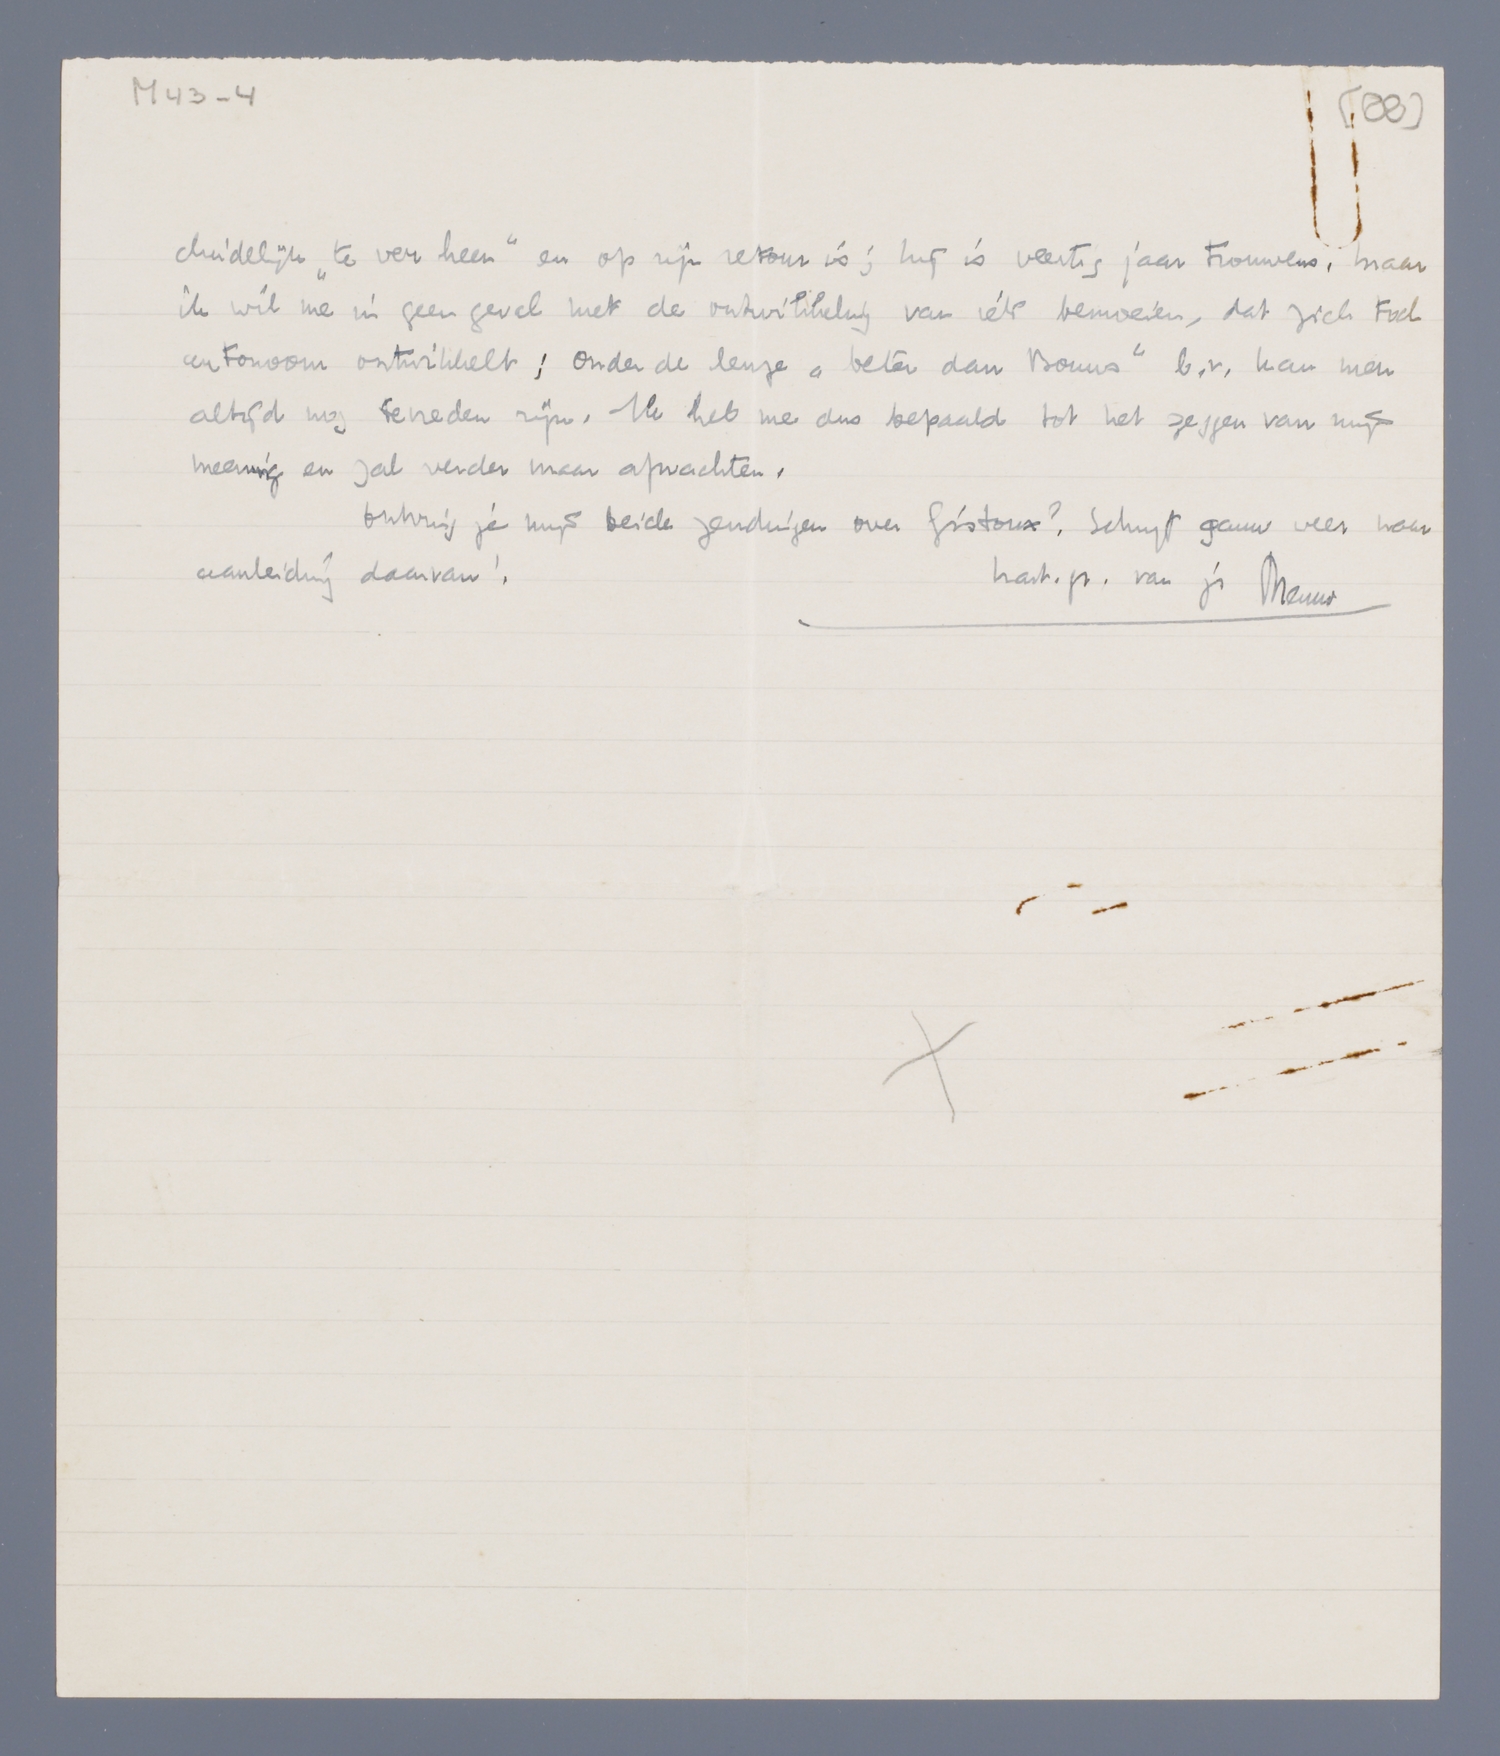 M43-4
duidelijk „te ver heen“ en op zijn retour is; hij is veertig jaar trouwens. Maar
ik wil me in geen geval met de ontwikkeling van iets bemoeien, dat zich toch
autonoom ontwikkelt; onder de leuze „beter dan Bouws“ b.v. kan men
altijd nog tevreden zijn. Ik heb me dus bepaald tot het zeggen van mijn
meening en zal verder maar afwachten.
Ontving je mijn beide zendingen over Gistoux? Schrijf gauw weer naar
aanleiding daarvan!
hart. gr. van je Menno